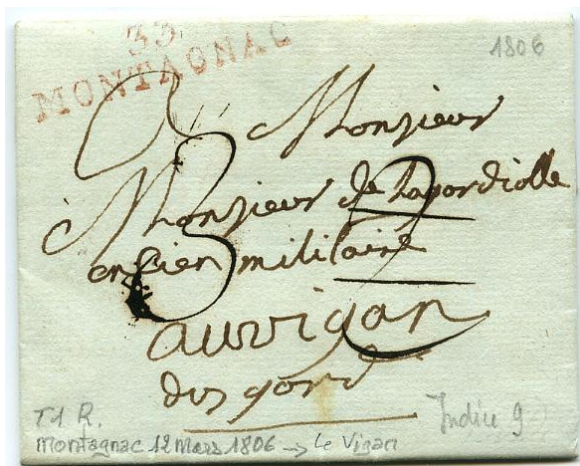 33
MONTAGNAC
1806
Monsieur
Monsieur de Lapordiolle
ancien militaire
auvigan
du gard
3
T1 R.
Montagnac 12 Mars 1806 → Le Vigan
Indice 9